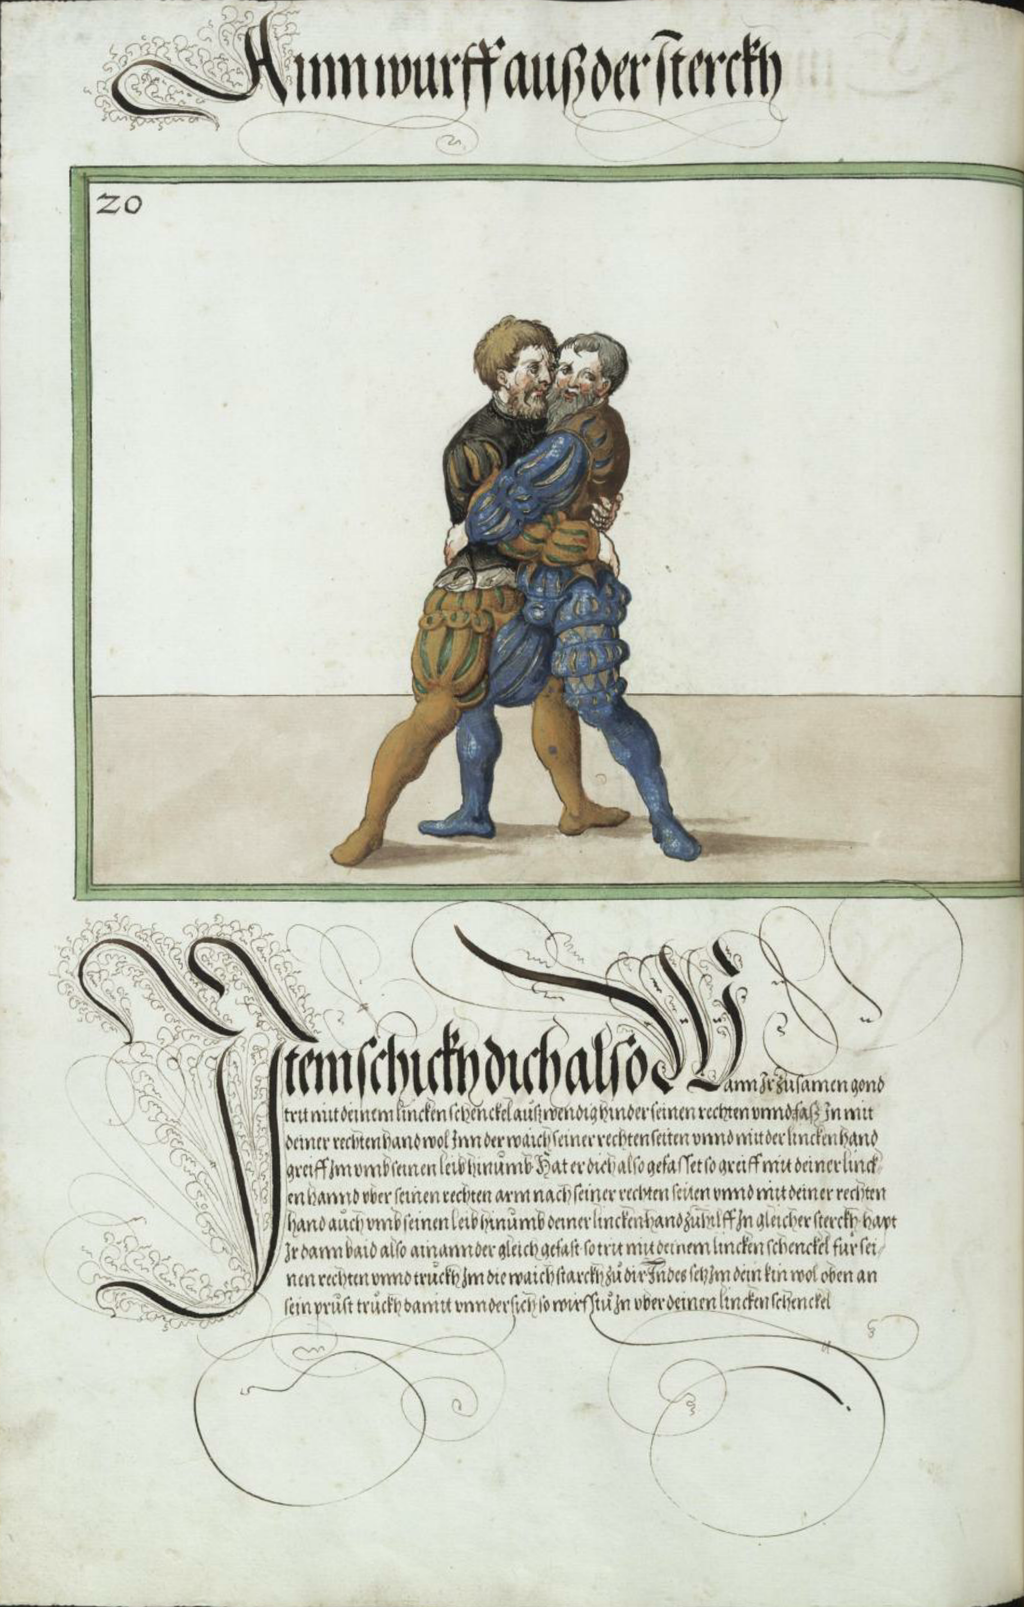 Ainn wurff auß der sterckh
20
Item schickh dich also Wann Ir zusamen gond
trit mit deinem lincken schenckel außwendig hinder seinen rechten vnnd faß In mit
deiner rechten hand wol Inn der waich seiner rechten seiten vnnd mit der lincken hand
greiff Im vmb seinen leib hinumb Hat er dich also gefasset so greiff mit deiner linck-
en hannd vber seinen rechten arm nach seiner rechten seiten vnnd mit deiner rechten
hand auch vmb seinen leib hinumb deiner lincken hand zuhilff In gleicher sterckh hapt
Ir dann baid also ain annder gleich gefast so trit mit deinem lincken schenckel für sei-
nen rechten vnnd truckh Im die waich starckh zu dir Indes setz Im dein kin wol oben an
sein prust truckh damit vnnder sich so wirfstu In vber deinen lincken schenckel